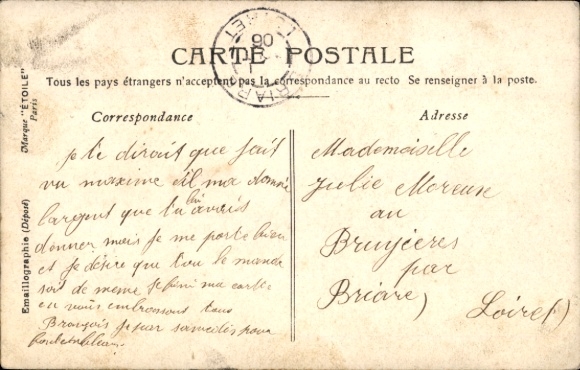 LOIRET
06
BRIARE
CARTE POSTALE
Tous les pays étrangers n'acceptent pas la correspondance au recto Se renseigner à la poste.
Marque "ÉTOILE"
Paris
Emaillographie (Déposé)
Correspondance
je te dirait que jait
vu maxime il ma donné
largent que tu lui avais
donner mais je me porte bien
et je désire que tou le monde
soit de meme je fini ma carte
en vous embrassant tous
François je par samedis pour
Adresse
Mademoiselle
Julie Moreuse
au
Bruyieres
par
Briare)
Loiret)